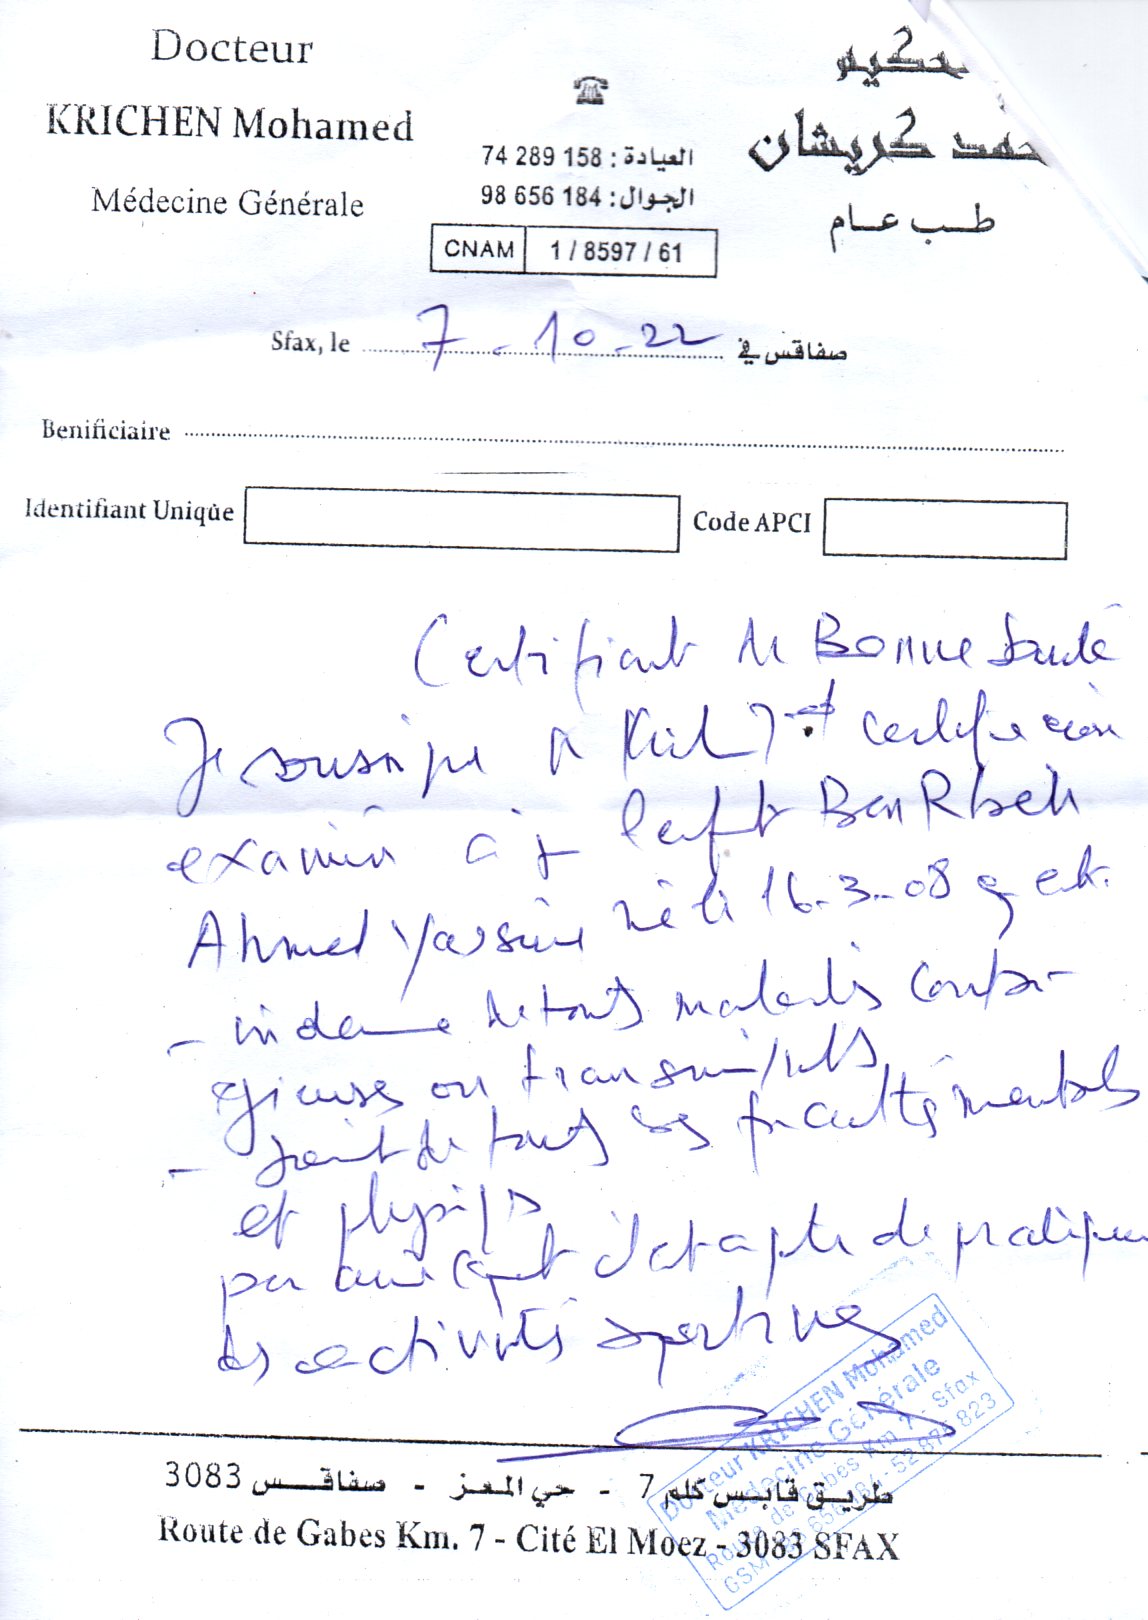 Docteur
KRICHEN Mohamed
Médecine Générale
حكيم
محمد كريشان
طب عام
العيادة : 74 289 158
الجوال : 98 656 184
CNAM 1 / 8597 / 61
Sfax, le 7 - 10 - 22 صفاقس في
Benificiaire
Identifiant Unique Code APCI
Certifiant de Bonne Santé
Je soussigne Dr certifie avoir
examiné l'enfant Ben Rbeh
Ahmed Yassine né le 16-3-08
- indemne de toutes maladies conta-
gieuses ou transmissibles
- jouit de toutes ses facultés mentales
et physiques
par conséquent il est apte de pratiquer
des activités sportives
Docteur KRICHEN Mohamed
Médecine Générale
Route de Gabes Km 7 - Sfax
GSM 98 656 184 - 52 875 823
طريق قابس كلم 7 - حي المعز - صفاقس 3083
Route de Gabes Km. 7 - Cité El Moez - 3083 SFAX